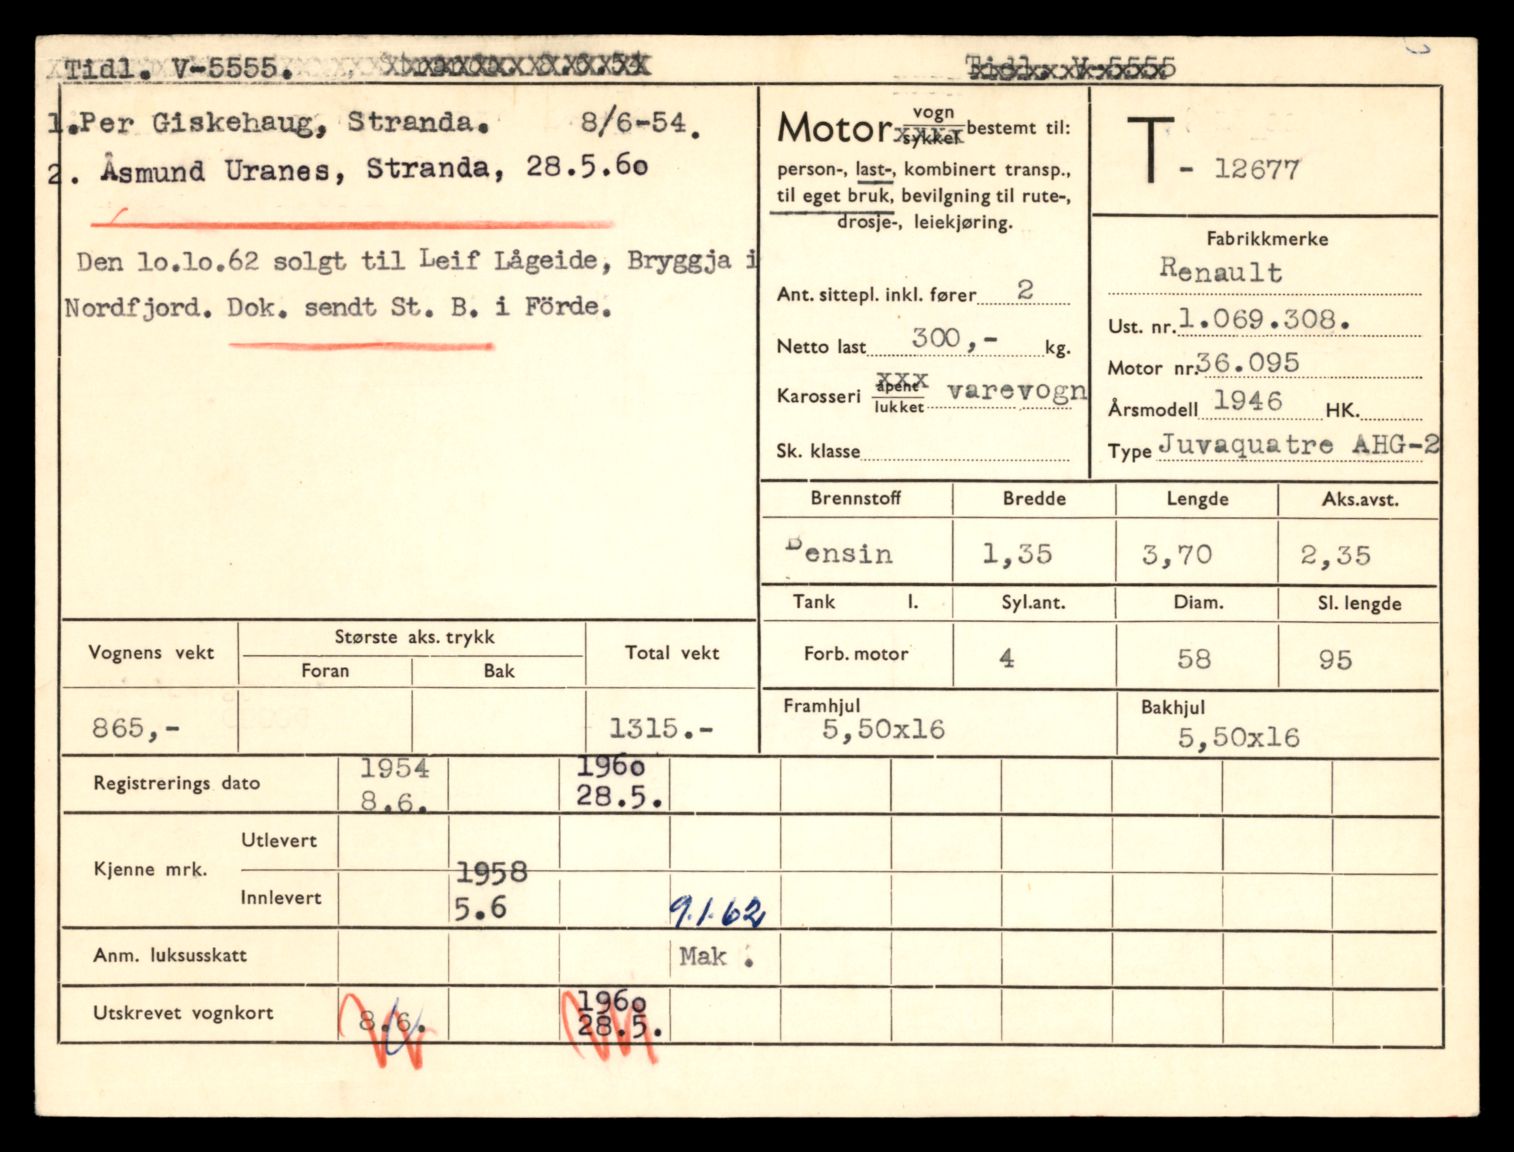 Tidl. V-5555.
Tidl. V-5555
1.Per Giskehaug, Stranda. 8/6-54.
2. Åsmund Uranes, Stranda, 28.5.6o
Den lo.lo.62 solgt til Leif Lågeide, Bryggja i
Nordfjord. Dok. sendt St. B. i Förde.
Motor vogn
sykkel bestemt til:
person-, last-, kombinert transp.,
til eget bruk, bevilgning til rute-,
drosje-, leiekjøring.
Ant. sittepl. inkl. fører 2
Netto last 300,- kg.
Karosseri åpent
lukket varevogn
Sk. klasse
T - 12677
Fabrikkmerke
Renault
Ust. nr. 1.069.308.
Motor nr. 36.095
Årsmodell 1946 HK.
Type Juvaquatre AHG-2
Brennstoff Bredde Lengde Aks.avst.
Bensin 1,35 3,70 2,35
Tank l. Syl.ant. Diam. Sl. lengde
Forb. motor 4 58 95
Framhjul Bakhjul
5,50x16 5,50x16
Vognens vekt Største aks. trykk Total vekt
Foran Bak
865,- 1315.-
Registrerings dato 1954 196o
8.6. 28.5.
Kjenne mrk. Utlevert
Innlevert 1958
5.6 9.1.62
Anm. luksusskatt Mak .
Utskrevet vognkort 8.6. 196o
28.5.